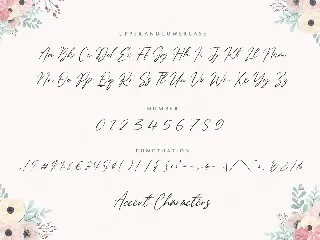 UPPER AND LOWERCASE
Aa Bb Cc Dd Ee Ff Gg Hh Ii Jj Kk Ll Mm
Nn Oo Pp Qq Rr Ss Tt Uu Vv Ww Xx Yy Zz
NUMBER
0 1 2 3 4 5 6 7 8 9
PUNCTUATION
Accent Characters